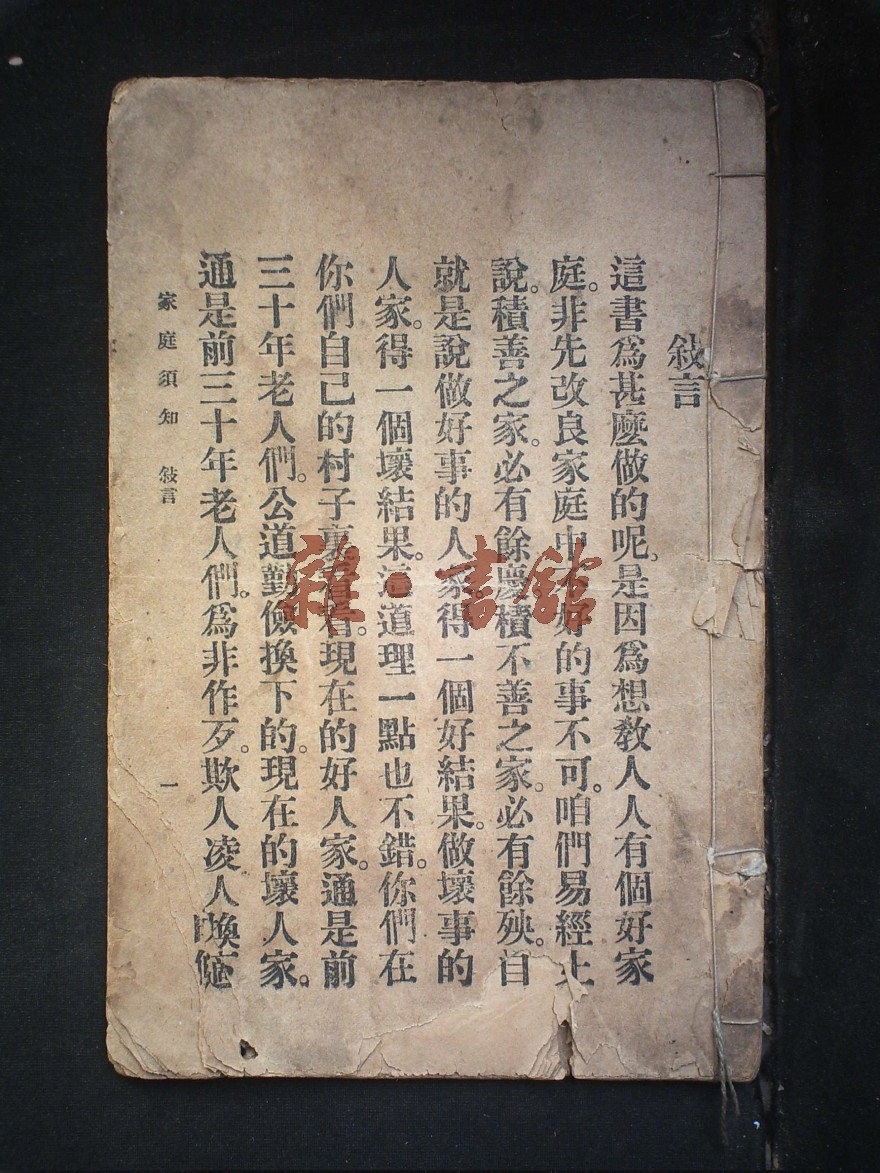 敍言
這書爲甚麼做的呢。是因爲想教人人有個好家
庭。非先改良家庭中不好的事不可。咱們易經上
說。積善之家。必有餘慶。積不善之家。必有餘殃。
就是說做好事的人家。得一個好結果。做壞事的
人家。得一個壞結果。這道理一點也不錯。你們在
你們自己的村子裏看看。現在的好人家。通是前
三十年老人們。公道勤儉換下的。現在的壞人家。
通是前三十年老人們。爲非作歹。欺人凌人
家庭須知 敍言 一
雜·書館